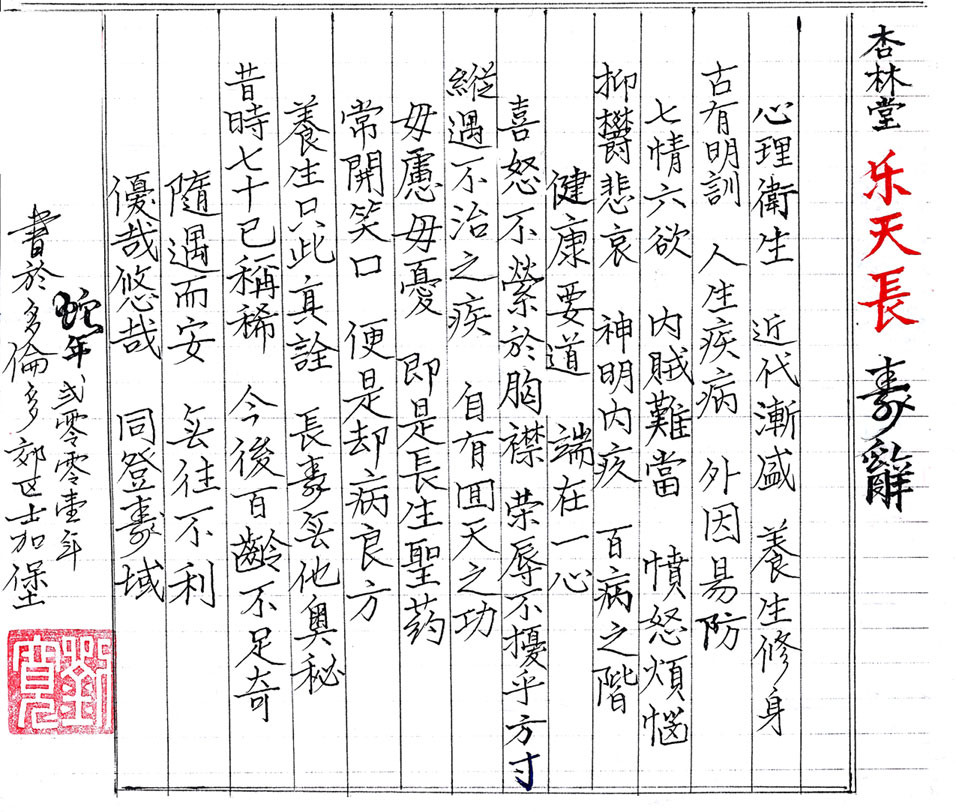 杏林堂 乐天長壽辭
心理衛生 近代漸盛 養生修身
古有明訓 人生疾病 外因易防
七情六欲 内賊難當 憤怒煩惱
抑欝悲哀 神明内疚 百病之階
健康要道 端在一心
喜怒不縈於胸襟 荣辱不擾乎方寸
縱遇不治之疾 自有囬天之功
毋慮毋憂 即是長生聖药
常開笑口 便是却病良方
養生只此真詮 長壽旡他奥秘
昔時七十已稱稀 今後百齡不足奇
隨遇而安 旡往不利
優哉悠哉 同登壽域
蛇年 弍零零壹年
書於多倫多郊区士加堡
劉寬